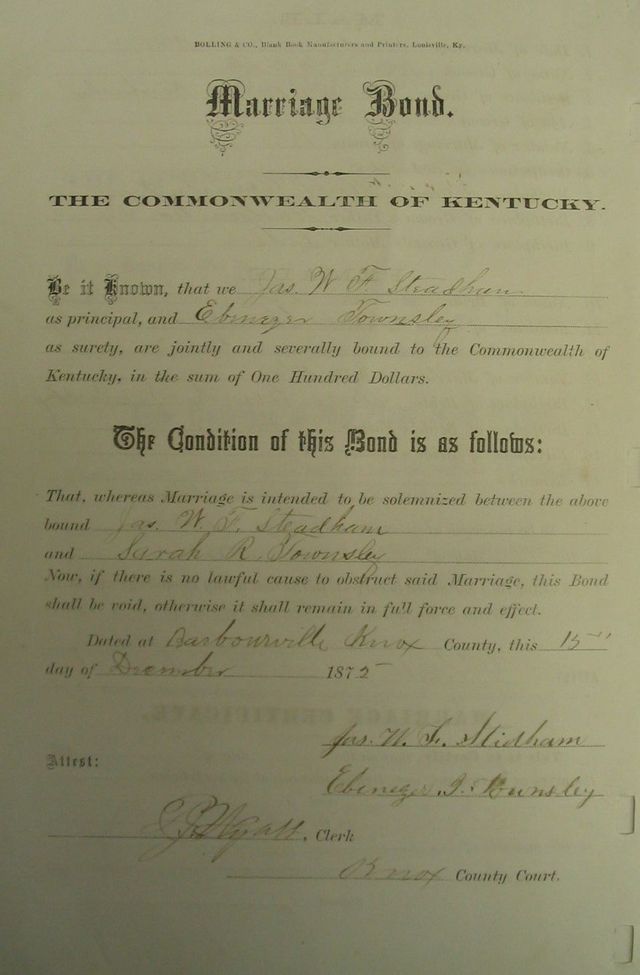 BOLLING & CO., Blank Book Manufacturers and Printers, Louisville, Ky.
Marriage Bond.
THE COMMONWEALTH OF KENTUCKY.
Be it Known, that we Jas. W. F. Steadham
as principal, and Ebenezer Townsley
as surety, are jointly and severally bound to the Commonwealth of
Kentucky, in the sum of One Hundred Dollars.
The Condition of this Bond is as follows:
That, whereas Marriage is intended to be solemnized between the above
bound Jas. W. F. Steadham
and Sarah R. Townsley
Now, if there is no lawful cause to obstruct said Marriage, this Bond
shall be void, otherwise it shall remain in full force and effect.
Dated at Barbourville Knox County, this 15"
day of December 1875
Jas. W. F. Stidham
Attest:
Ebenezer J. Townsley
Wyatt, Clerk
Knox County Court.